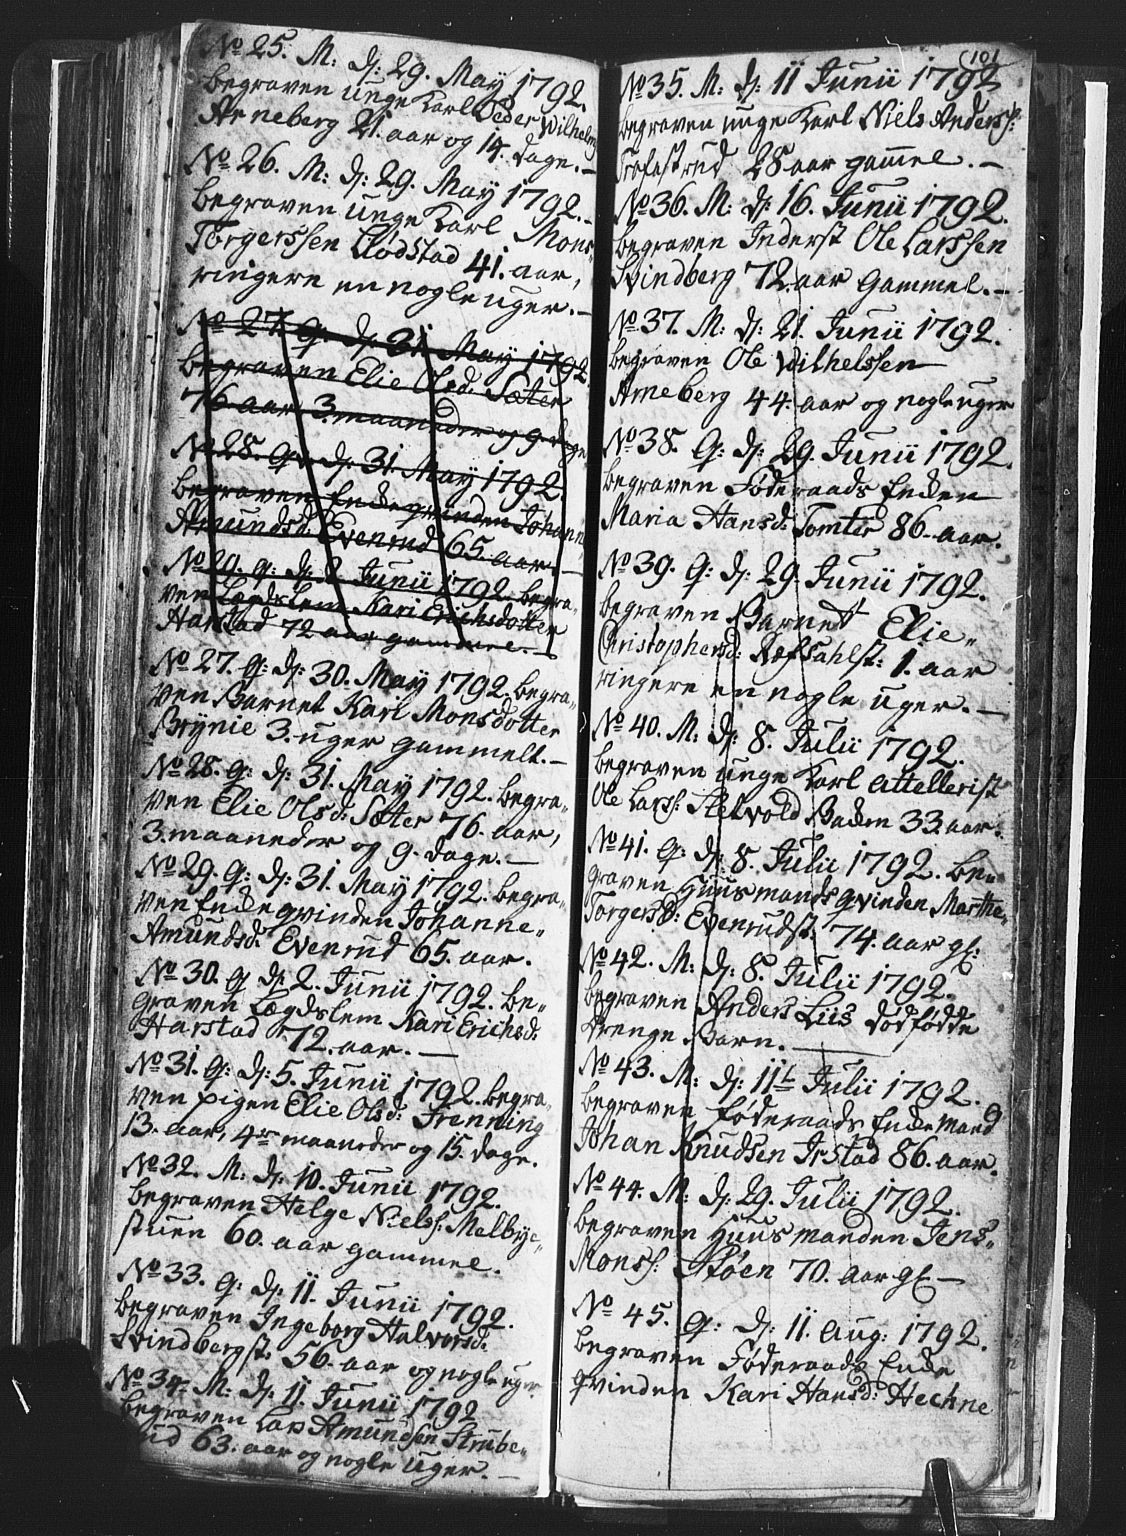 No 25. M: d: 29. May 1792.
begraven unge Karl Peder Wilhelms:
Arneberg 21. aar og 14. dage. —
No 26. M: d: 29. May 1792. —
begraven unge Karl Mons
Torgerssen Flodstad 41. aar,
ringere en nogle uger. —
No 27. Q: d: 31 May 1792.
begraven Elie Olsd. Sæter
76 aar 3. maaneder og 9 dage
No 28. Q: d: 31. May 1792.
begraven Enkeqvinden Johanne
Amundsd: Evenrud 65. aar. —
No 29. Q: d: 2 Junii 1792. begra-
ven Lægdslem Kari Erichsdotter
Harstad 72 aar gammel. —
No 27. Q: d: 30. May 1792. begra-
ven Barnet Kari Monsdotter
Brynie 3. uger gammelt. —
No 28. Q: d: 31. May 1792. begra-
ven Elie Olsd: Sæter 76. aar,
3. maaneder og 9. dage. —
No 29. Q: d: 31. May 1792. begra-
ven Enkeqvinden Johanne-
Amundsd: Evenrud 65. aar.
No 30. Q d: 2. Junii 1792. be-
graven Lægdslem Kari Erichsd:
Harstad 72. aar. —
No 31. Q: d: 5. Junii 1792. begra-
ven pigen Elie Olsd: Frenning
13. aar, 4er maaneder og 15. dage.
No 32. M. d: 10. Junii 1792.
begraven Helge Nielss: Melbye-
stuen 60. aar gammel.
No 33. Q: d: 11. Junii 1792.
begraven Ingeborg Halvorsd.
Svindbergst. 56. aar og nogle uger
No 34. M. d: 11. Junii 1792
begraven Lars Amundsen Strube-
rud 63. aar og nogle uger. —
(101
No 35. M: d: 11 Junii 1792
begraven unge Karl Niels Anderss:
Tofastrud 28 aar gammel. —
No 36. M: d: 16. Junii 1792.
begraven Inderst Ole Larssen
Svindberg 72. aar Gammel. —
No 37. M: d: 21. Junii 1792.
begraven Ole Wilhelssen
Arneberg 44. aar og nogle uger
No 38. Q: d: 29. Junii 1792.
begraven Føderaads Enken
Maria Hansd: Tomter 86. aar.
No 39. Q: d: 29. Junii 1792.
begraven Barnet Elie-
Christophersd: Kefsahlst: 1. aar
ringere en nogle uger. —
No 40. M: d: 8. Julii 1792.
begraven unge Karl Attellerist
Ole Larss: Skelvold Bakken 33. aar.
No 41. Q: d: 8. Julii 1792. be-
graven Huusmandsqvinden Marthe-
Torgersd: Evenrudst. 74. aar gl:
No 42. M. d: 8. Julii 1792.
begraven Anders Liis dødfødde
drenge Barn. —
No 43. M: d: 11t Julii 1792.
begraven Føderaads Enkemand
Johan Knudsen Irstad 86. aar.
No 44. M: d: 29. Julii 1792.
begraven Huusmanden Jens-
Monss: Støen 70. aar gl —
No 45. Q: d: 11. Aug: 1792.
begraven Føderaads Enke
qvinden Kari Hansd: Hechne